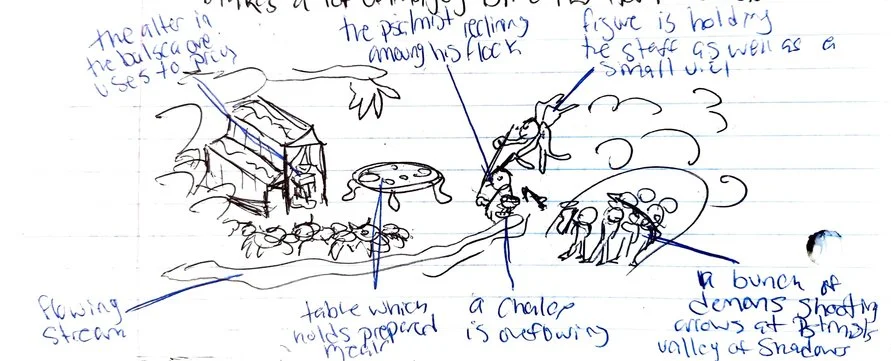 the alter in
the
uses to pray
the psalmist reclining
among his flock
figure is holding
the staff as well as a
small vial
flowing
stream
table which
holds prepared
meal
a
is overflowing
a bunch of
demons shooting
arrows at
valley of Shadows